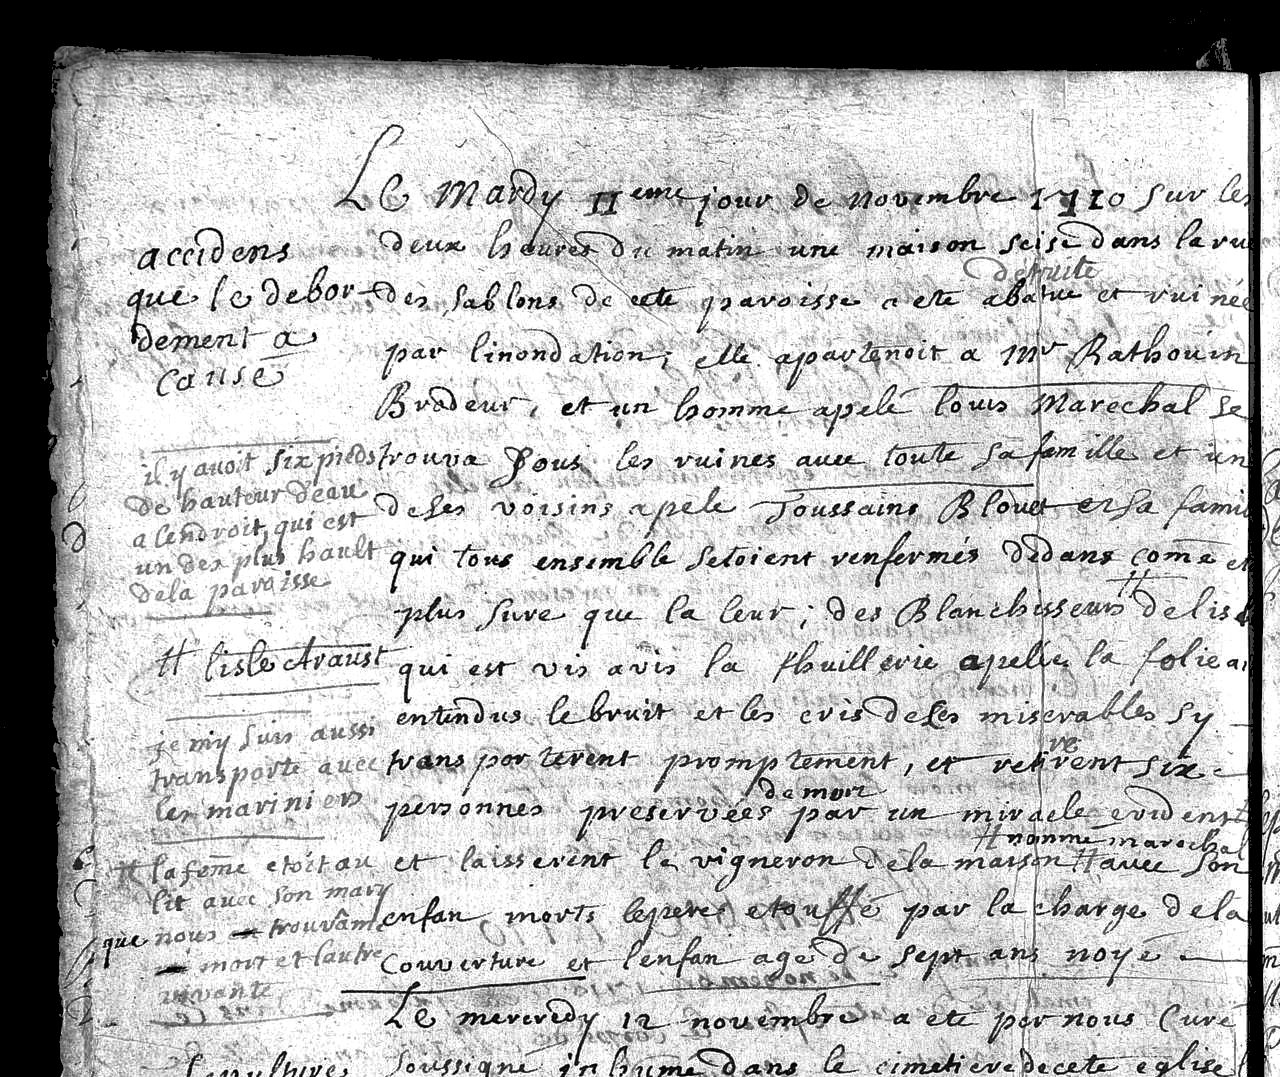 Le Mardy 11eme jour de novembre 1710 sur les
deux heures du matin une maison seise dans la rue
detruite
des sablons de cete paroisse a ete abatue et ruinée
par linondation; elle apartenoit a Mr Rathouin
Brodeur, et un homme apelé louis Marechal se
trouva sous les ruines avec toute sa famille et un
de ses voisins apele Toussains Blouet et sa
qui tous ensemble setoient renfermés dedans come
plus sure que la leur; des Blanchisseurs # de
qui est vis avis la thuillerie apellee la folie
entendus le bruit et les cris de ses miserables sy
re
transporterent promptement, et retirent six
de mort
personnes preservées par un miracle evident
# nomme marechal
et laisserent le vigneron de la maison # avec son
enfan morts le pere etouffé par la charge de la
couverture et lenfan age de sept ans noyé
Le mercredy 12 novembre a ete par nous Curé
soussigné inhumé dans le cimetiere de cete eglise
accidens
que le debor-
dement a
causé
il y avoit six pieds
de hauteur deau
a lendroit, qui est
un des plus hault
de la paroisse
# lisle
je my suis aussi
transporté avec
les mariniers
# la feme etoit au
lit avec son mary
que nous trouvâmes
mort et lautre
vivante
sepulture